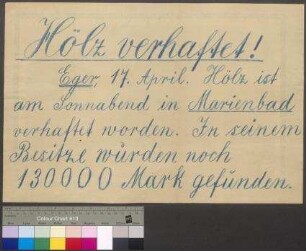 Hölz verhaftet!
Eger, 17. April. Hölz ist
am Sonnabend in Marienbad
verhaftet worden. In seinem
Besitze wurden noch
130000 Mark gefunden.
Colour Chart #13